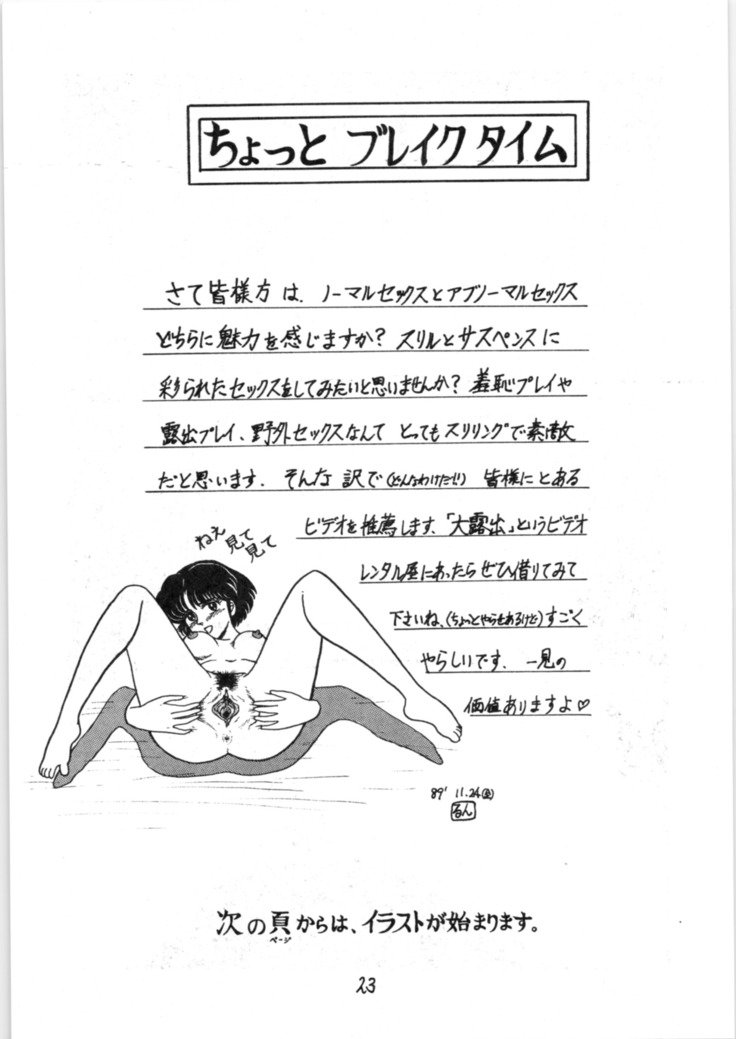 ちょっと ブレイク タイム
さて皆様方は、ノーマルセックスとアブノーマルセックス
どちらに魅力を感じますか？スリルとサスペンスに
彩られたセックスをしてみたいと思いませんか？羞恥プレイや
露出プレイ、野外セックスなんて とってもスリリングで素敵
だと思います。そんな訳で(どんなわけだ!!) 皆様にとある
ビデオを推薦します、「大露出」というビデオ
レンタル屋にあったらぜひ借りてみて
下さいね、(ちょっとやらせもあるけど)すごく
やらしいです。一見の
価値ありますよ♡
ねえ
見て
見て
89' 11.24(金)
るん
次の頁からは、イラストが始まります。
ページ
23